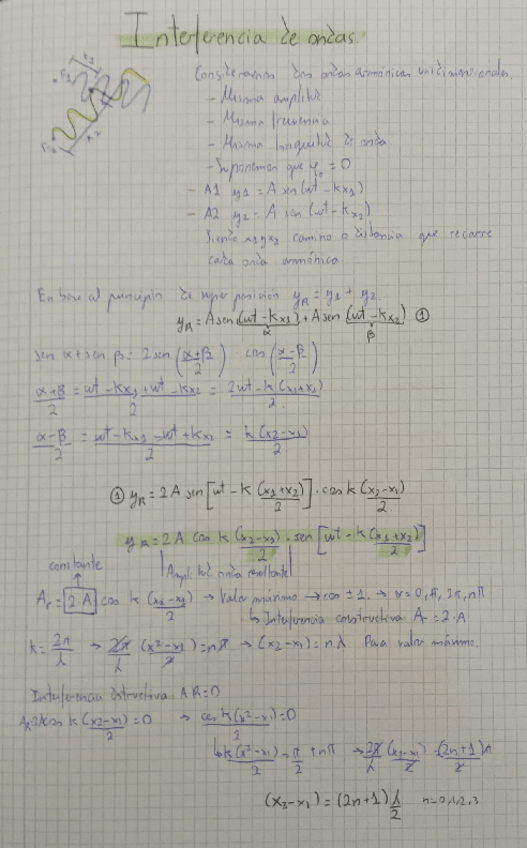 Interferencia de ondas.
Consideramos dos ondas armónicas unidimensionales.
- Misma amplitud
- Misma frecuencia
- Misma longitud de onda.
- Suponemos que φ₀ = 0
- A1 y1 = A sen(wt - kx1)
- A2 y2 = A sen (wt - kx2)
Siendo x1 y x2 camino o distancia que recorre
cada onda armónica.
En base al principio de superposición y_R = y1 + y2
y_R = A sen (wt - kx1) + A sen (wt - kx2) ①
α β
sen α + sen β = 2 sen (α+β/2) · cos (α-β/2)
α+β/2 = wt - kx1 + wt - kx2/2 = 2wt - k(x1+x2)/2
α-β/2 = wt - kx1 - wt + kx2/2 = k(x2-x1)/2
① y_R = 2A sen [wt - k (x1+x2)/2] · cos k (x2-x1)/2
y_R = 2A cos k (x2-x1)/2 · sen [wt - k (x1+x2)/2]
constante
|Amplitud onda resultante|
A_r = 2·A cos k (x2-x1)/2 → Valor máximo → cos ±1. → α = 0, π, 2π, nπ
↳ Interferencia constructiva A_r = 2·A
k = 2π/λ → 2π/λ (x2-x1)/2 = nπ → (x2-x1) = nλ Para valor máximo.
Interferencia destructiva AR=0
A_R 2A cos k (x2-x1)/2 = 0 → cos k (x2-x1)/2 = 0
↳ k (x2-x1)/2 = π/2 + nπ → 2π/λ (x2-x1)/2 = (2n+1)π/2
(x2-x1) = (2n+1) λ/2 n=0,1,2,3